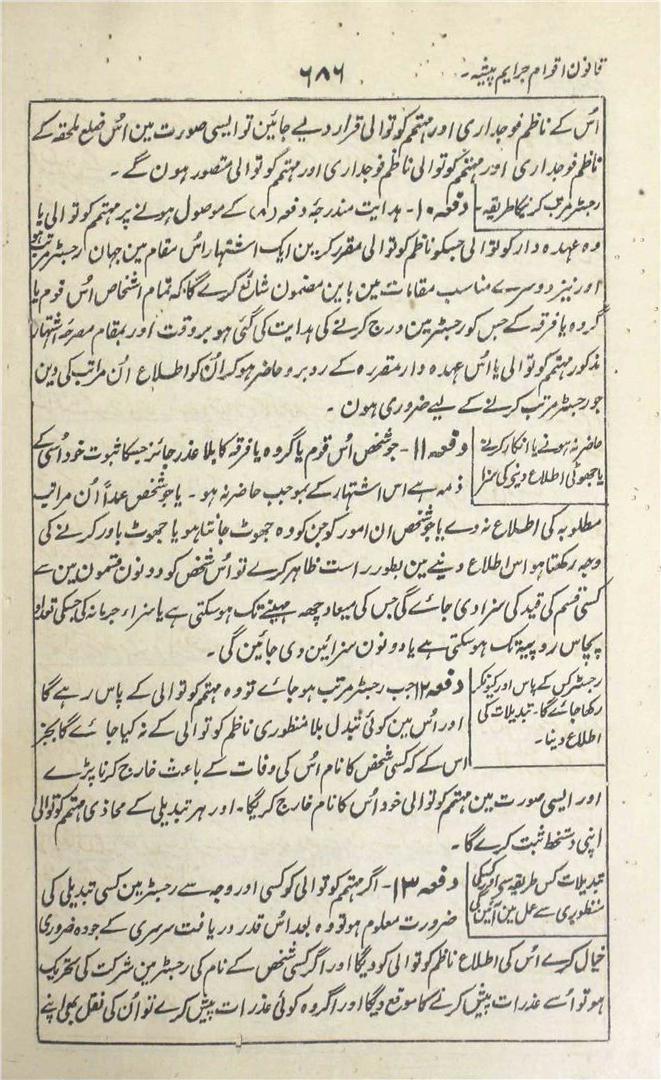 قانون اقوام جرایم پیشہ -
۶۸۶
اُس کے ناظم فوجداری اور مہتمم کوتوالی قرار دیے جائین تو ایسی صورت مین اُس ضلع ملحقہ کے
ناظم فوجداری اور مہتمم کوتوالی ناظم فوجداری اور مہتمم کوتوالی متصور ہون گے -
رجسٹر مرتب کرنیکا طریقہ -
دفعہ ۱۰ - ہدایت مندرجۂ دفعہ (۸) کے موصول ہونے پر مہتمم کوتوالی یا
وہ عہدہ دار کوتوالی جسکو ناظم کوتوالی مقرر کرین ایک اشتہار اُس مقام مین جہان رجسٹر مرتب ہو
اور نیز دوسرے مناسب مقامات مین باین مضمون شائع کرے گا کہ تمام اشخاص اُس قوم یا
گروہ یا فرقہ کے جس کو رجسٹر مین درج کرنے کی ہدایت کی گئی ہو بروقت اور بمقام مصرحہ اشتہار
مذکور مہتمم کوتوالی یا اُس عہدہ دار مقررہ کے روبرو حاضر ہوکر اُن کو اطلاع اُن مراتب کی دین
جو رجسٹر مرتب کرنے کے لیے ضروری ہون -
حاضر نہ ہونے یا انکار کرنے
یا جھوٹی اطلاع دینے کی سزا
دفعہ ۱۱ - جو شخص اُس قوم یا گروہ یا فرقہ کا بلا عذر جائز جسکا ثبوت خود اُسی کے
ذمہ ہے اس اشتہار کے بموجب حاضر نہ ہو - یا جو شخص عمداً اُن مراتب
مطلوبہ کی اطلاع نہ دے یا جو شخص ان امور کو جن کو وہ جھوٹ جانتا ہو یا جھوٹ باور کرنے کی
وجہ رکھتا ہو اس اطلاع دینے مین بطور راست ظاہر کرے تو اُس شخص کو دونون قسمون مین سے
کسی قسم کی قید کی سزا دی جائے گی جس کی میعاد چھہ مہینے تک ہوسکتی ہے یا سزاء جرمانہ کی جسکی تعداد
پچاس روپیہ تک ہوسکتی ہے یا دونون سزائین دی جائین گی -
رجسٹر کس کے پاس اور کیونکر
رکھا جائے گا - تبدیلات کی
اطلاع دینا -
دفعہ ۱۲ جب رجسٹر مرتب ہوجائے تو وہ مہتمم کوتوالی کے پاس رہے گا
اور اُس مین کوئی تبدل بلا منظوری ناظم کوتوالی کے نہ کیا جائے گا بجز
اس کے کہ کسی شخص کا نام اُس کی وفات کے باعث خارج کرنا پڑے
اور ایسی صورت مین مہتمم کوتوالی خود اُس کا نام خارج کریگا - اور ہر تبدیلی کے محاذی مہتمم کوتوالی
اپنی دستخط ثبت کرے گا -
تبدیلات کس طریقہ سے اور کسکی
منظوری سے عمل مین آئین گی
دفعہ ۱۳ - اگر مہتمم کوتوالی کو کسی اور وجہ سے رجسٹر مین کسی تبدیلی کی
ضرورت معلوم ہو تو وہ بعد اُس قدر دریافت سرسری کے جو وہ ضروری
خیال کرے اُس کی اطلاع ناظم کوتوالی کو دیگا اور اگر کسی شخص کے نام کی رجسٹر مین شرکت کی تحریک
ہو تو اُسے عذرات پیش کرنے کا موقع دیگا اور اگر وہ کوئی عذرات پیش کرے تو اُن کی نقل بھی اپنے